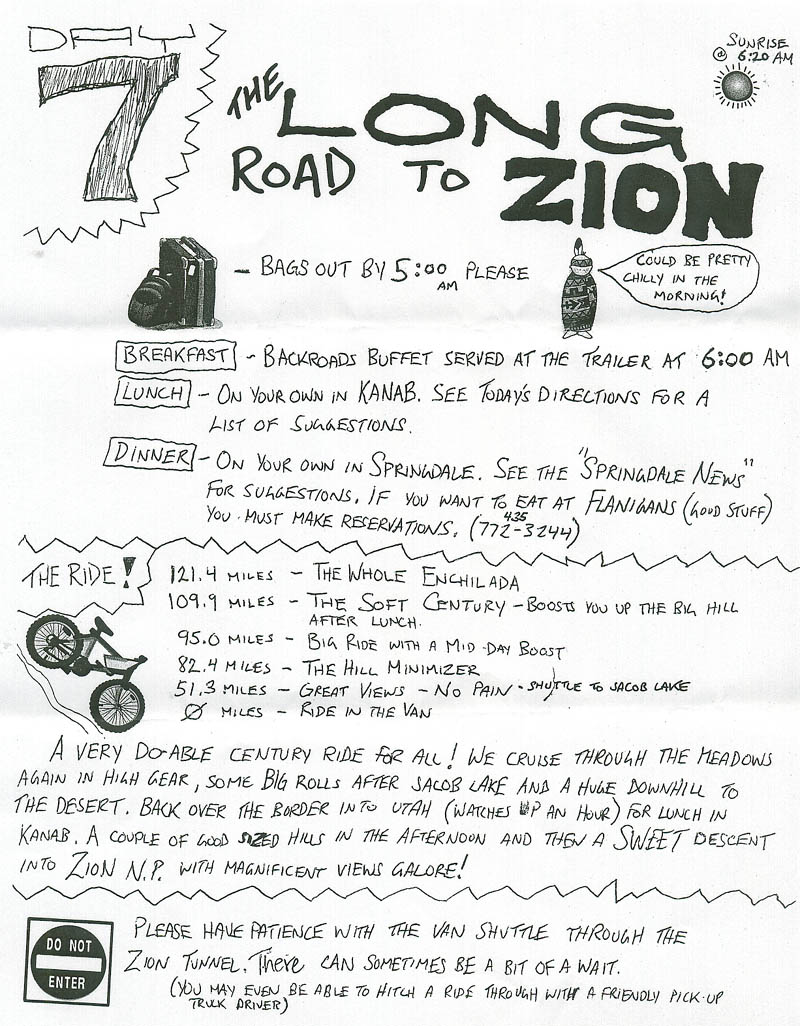 DAY
7
SUNRISE
@ 6:20 AM
THE LONG
ROAD TO ZION
- BAGS OUT BY 5:00 AM PLEASE
COULD BE PRETTY
CHILLY IN THE
MORNING!
BREAKFAST - BACKROADS BUFFET SERVED AT THE TRAILER AT 6:00 AM
LUNCH - ON YOUR OWN IN KANAB. SEE TODAY'S DIRECTIONS FOR A
LIST OF SUGGESTIONS.
DINNER - ON YOUR OWN IN SPRINGDALE. SEE THE "SPRINGDALE NEWS"
FOR SUGGESTIONS. IF YOU WANT TO EAT AT FLANIGANS (GOOD STUFF)
YOU MUST MAKE RESERVATIONS. (772-3244)
435
THE RIDE!
121.4 MILES - THE WHOLE ENCHILADA
109.9 MILES - THE SOFT CENTURY - BOOSTS YOU UP THE BIG HILL
AFTER LUNCH.
95.0 MILES - BIG RIDE WITH A MID-DAY BOOST
82.4 MILES - THE HILL MINIMIZER
51.3 MILES - GREAT VIEWS - NO PAIN - SHUTTLE TO JACOB LAKE
Ø MILES - RIDE IN THE VAN
A VERY DO-ABLE CENTURY RIDE FOR ALL! WE CRUISE THROUGH THE MEADOWS
AGAIN IN HIGH GEAR, SOME BIG ROLLS AFTER JACOB LAKE AND A HUGE DOWNHILL TO
THE DESERT. BACK OVER THE BORDER INTO UTAH (WATCHES UP AN HOUR) FOR LUNCH IN
KANAB. A COUPLE OF GOOD SIZED HILLS IN THE AFTERNOON AND THEN A SWEET DESCENT
INTO ZION N.P. WITH MAGNIFICENT VIEWS GALORE!
DO NOT
ENTER
PLEASE HAVE PATIENCE WITH THE VAN SHUTTLE THROUGH THE
ZION TUNNEL. There CAN SOMETIMES BE A BIT OF A WAIT.
(YOU MAY EVEN BE ABLE TO HITCH A RIDE THROUGH WITH A FRIENDLY PICK-UP
TRUCK DRIVER)